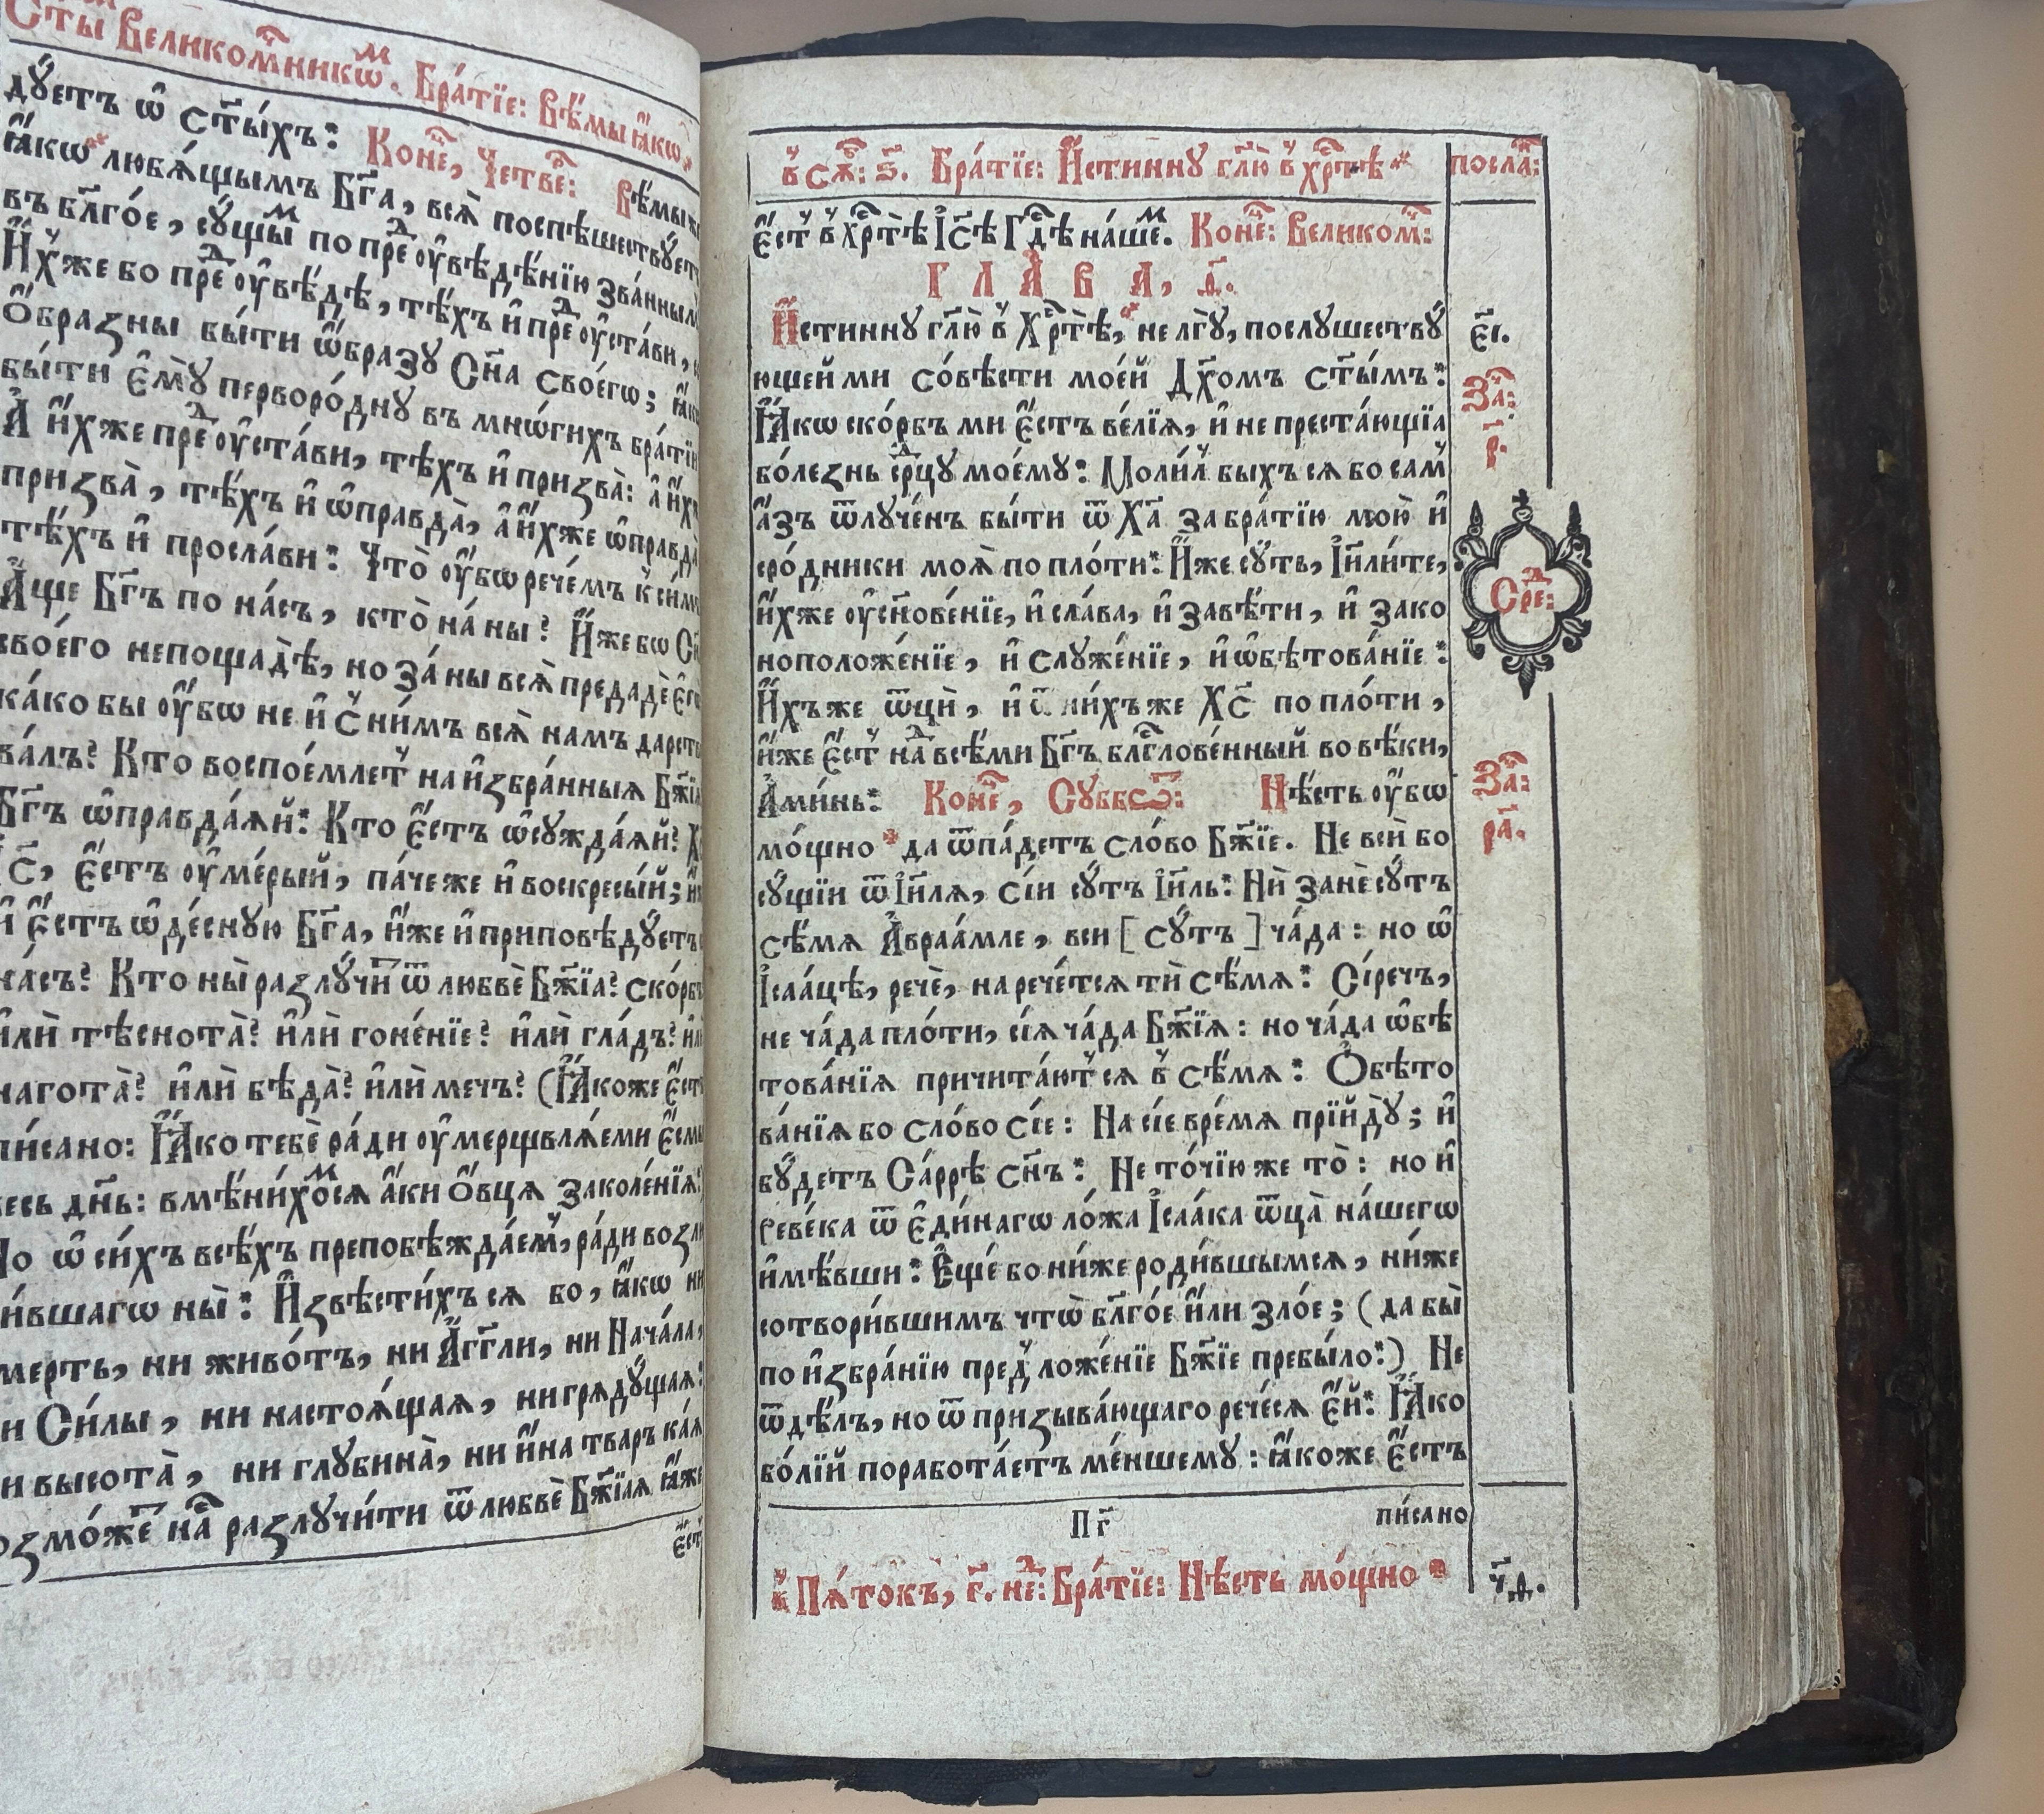 Ст҃ы Великомч҃никѡⷨ. Бра́тїе: Вѣ́мы ꙗ҆́кѡ
дꙋ́етъ ѡ҆ ст҃ы́хъ: Коне́ⷰ, Четве́ⷬ: Вѣ́мы же
ꙗ҆́кѡ любѧ́щымъ Бг҃а, всѧ̀ поспѣшествꙋ́етъ
въ бл҃го́е, сꙋ́щыⷨ по преⷣꙋвѣ́дѣнїю зва́ннымъ
И҆́хже бо преⷣꙋвѣ́дѣ, тѣ́хъ и҆ преⷣꙋста́ви,
ѻ҆́бразны бы́ти ѡ҆́бразꙋ Сн҃а своегѡ̀; ꙗ҆́кѡ
бы́ти є҆мꙋ̀ перворо́днꙋ въ мно́гихъ бра́тїи
А҆ и҆́хже преⷣꙋста́ви, тѣ́хъ и҆ призва̀: а҆ и҆́хже
призва̀, тѣ́хъ и҆ ѡ҆правда̀, а҆ и҆́хже ѡ҆правда̀
тѣ́хъ и҆ просла́ви: Что̀ ᲂу҆́бѡ рече́мъ к си́мъ
А҆́ще Бг҃ъ по на́съ, кто̀ на́ ны? И҆́же бѡ Сн҃а
своего̀ непощадѣ̀, но за́ ны всѧ̀ предадѐ є҆го̀
ка́ко бы ᲂу҆́бѡ не и҆ с ни́мъ всѧ̀ нам дарст
ва́лъ? Кто воспое́млетъ на и҆збра́нныѧ Бж҃їѧ
Бг҃ъ ѡ҆правда́ѧй: Кто є҆́стъ ѡ҆сꙋжда́ѧй?
Іс҃, є҆́стъ ᲂу҆ме́рый, па́че же и҆ воскресы́й;
и҆ є҆́стъ ѡ҆десну́ю Бг҃а, и҆́же и҆ приповѣ́дꙋетъ
на́съ? Кто ны̀ разлꙋ́чиⷮ ѿ любвѐ Бж҃їа? ско́рбь
и҆лѝ тѣснота̀? и҆лѝ гоне́нїе? и҆лѝ гла́дъ? и҆лѝ
нагота̀? и҆лѝ бѣда̀? и҆лѝ мечъ? (Ꙗ҆́коже є҆́ст
пи́сано: Ꙗ҆́ко тебѐ ра́ди ᲂу҆мерщвлѧ́еми є҆смы
весь дн҃ь: вмѣни́хоⷨсѧ а҆́ки ѻ҆́вцѧ заколе́нїѧ:
Но ѡ҆ си́хъ всѣ́хъ препобѣжда́емъ, ра́ди возлю
би́вшагѡ ны̀: И҆звѣсти́хъсѧ бо, ꙗ҆́кѡ ни
смерть, ни живо́тъ, ни А҆́гг҃ли, ни Нача́ла,
ни Си́лы, ни настоѧ́щаѧ, ни грѧдꙋ́щаѧ:
ни высота̀, ни глꙋбина̀, ни и҆́на тварь ка́ѧ
возмо́жеⷮ на́ⷭ разлꙋчи́ти ѿ любвѐ Бж҃їѧ ꙗ҆́же
є҆́ст
в̾ сѧ҃: ѕ҃. Бра́тїе: И҆́стиннꙋ гл҃ю в̾ хрⷭ҇тѣ посла҃:
є҆́ст в̾ Хрⷭ҇тѣ̀ І҆с҃ѣ Гдⷭ҇ѣ на́шеⷨ. Коне́ⷰ: Великом҃ч:
ГЛАВА, ѳ҃.
И҆́стиннꙋ гл҃ю в̾ Хрⷭ҇тѣ̀, не лгꙋ̀, послꙋшествꙋ́
ющей ми со́вѣсти мое́й Дх҃омъ ст҃ы́мъ:
Ꙗ҆́кѡ ско́рбь ми є҆́стъ ве́лїѧ, и҆ не преста́ющїа
бо́лезнь срⷣцꙋ моемꙋ̀: Моли́л̾ быхъ сѧ бо сам̾
а҆́зъ ѿлꙋче́нъ бы́ти ѿ Ха҃ за бра́тїю мою̀ и҆
сро́дники моѧ̀ по пло́ти: И҆́же сꙋ́ть, І҆и҃ли́те,
и҆́хже ᲂу҆сн҃ове́нїе, и҆ сла́ва, и҆ завѣ́ти, и҆ зако
ноположе́нїе, и҆ слꙋже́нїе, и҆ ѡ҆бѣтова́нїе:
И҆́хъже ѿцы̀, и҆ ѿ ни́хъже Хс҃ по пло́ти,
и҆́же є҆́ст̾ наⷣ всѣ́ми Бг҃ъ блⷭ҇гове́нный во вѣ́ки,
А҆ми́нь: Коне́ⷰ, Сꙋббѡ҃: Нѣ́сть ᲂу҆́бѡ
мо́щно да ѿпа́детъ сло́во Бж҃їе. Не всѝ бо
сꙋ́щїи ѿ І҆и҃лѧ, сі́и сꙋ́ть І҆и҃ль: Нѝ занѐ сꙋ́ть
сѣ́мѧ А҆враа́мле, вси [ сꙋ́ть ] ча́да: но ѡ҆
І҆саа́цѣ, речѐ, нарече́тсѧ тѝ сѣ́мѧ: Сі́речъ,
не ча́да пло́ти, сі́ѧ ча́да Бж҃їѧ: но ча́да ѡ҆бѣ
това́нїѧ причита́ютсѧ в̾ сѣ́мѧ: Ѻ҆бѣто
ва́нїѧ бо сло́во сі́е: На сі́е вре́мѧ прїйдꙋ̀; и҆
бꙋ́детъ Са́ррѣ сн҃ъ: Не то́чїю же то̀: но и҆
Реве́ка ѿ є҆ди́нагѡ ло́жа І҆саа́ка ѿца̀ на́шегѡ
и҆мѣ́вши: Є҆ще́ бо ни́же роди́вшымсѧ, ни́же
сотвори́вшимъ что̀ бл҃го́е и҆́ли зло́е; ( да бы̀
по и҆збра́нїю пред̾ложе́нїе Бж҃їе пребы́ло:) Не
ѿ дѣ́лъ, но ѿ призыва́ющаго рече́сѧ є҆́й: Ꙗ҆́ко
бо́лїй порабо́таетъ ме́ншемꙋ: ꙗ҆́коже є҆́стъ
пи́сано
пг҃
в̾ Пѧ́токъ, г҃. неⷣ: Бра́тїе: Нѣ́сть мо́щно
є҃і.
За҃ч:
р҃.
Среⷣ:
За҃ч:
ра҃.
ч҃д.